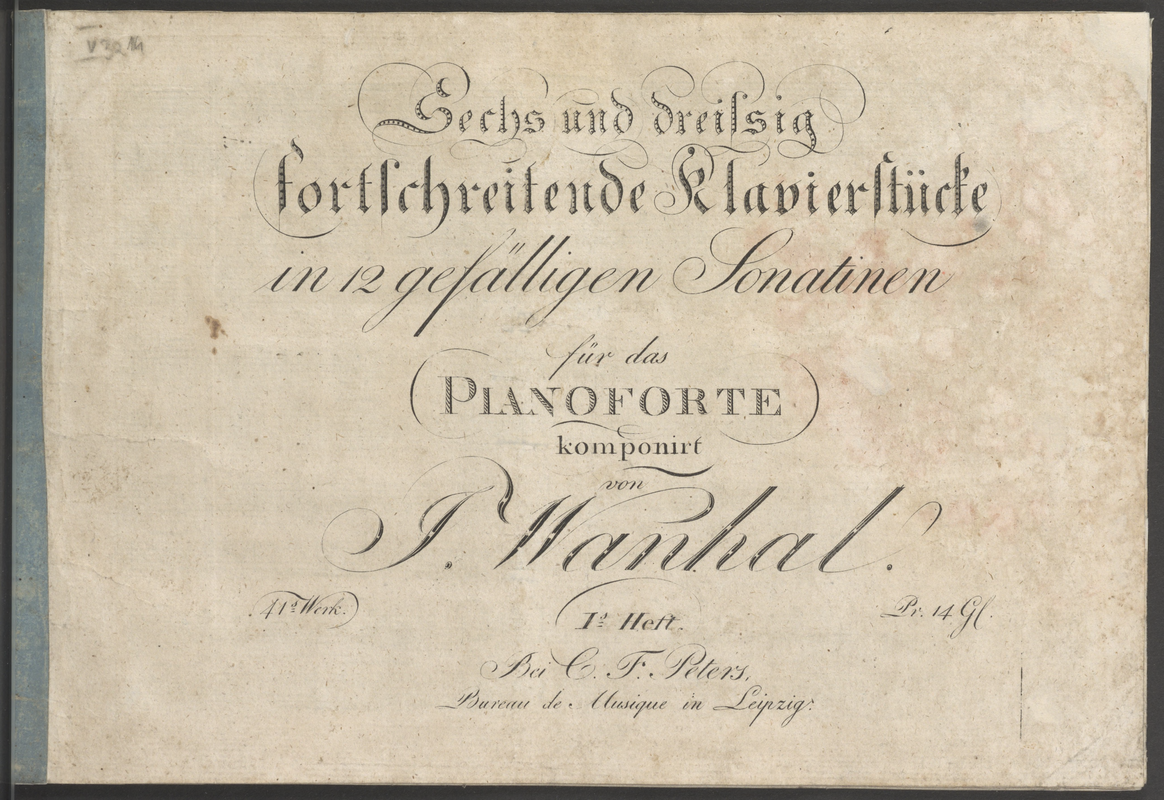 V 3a 14
Sechs und dreiſsig
fortſchreitende Klavierſtücke
in 12 gefälligen Sonatinen
für das
PIANOFORTE
komponirt
von
J. Wanhal.
41s Werk.
Is Heft.
Pr. 14 Gl.
Bei C. F. Peters,
Bureau de Musique in Leipzig.